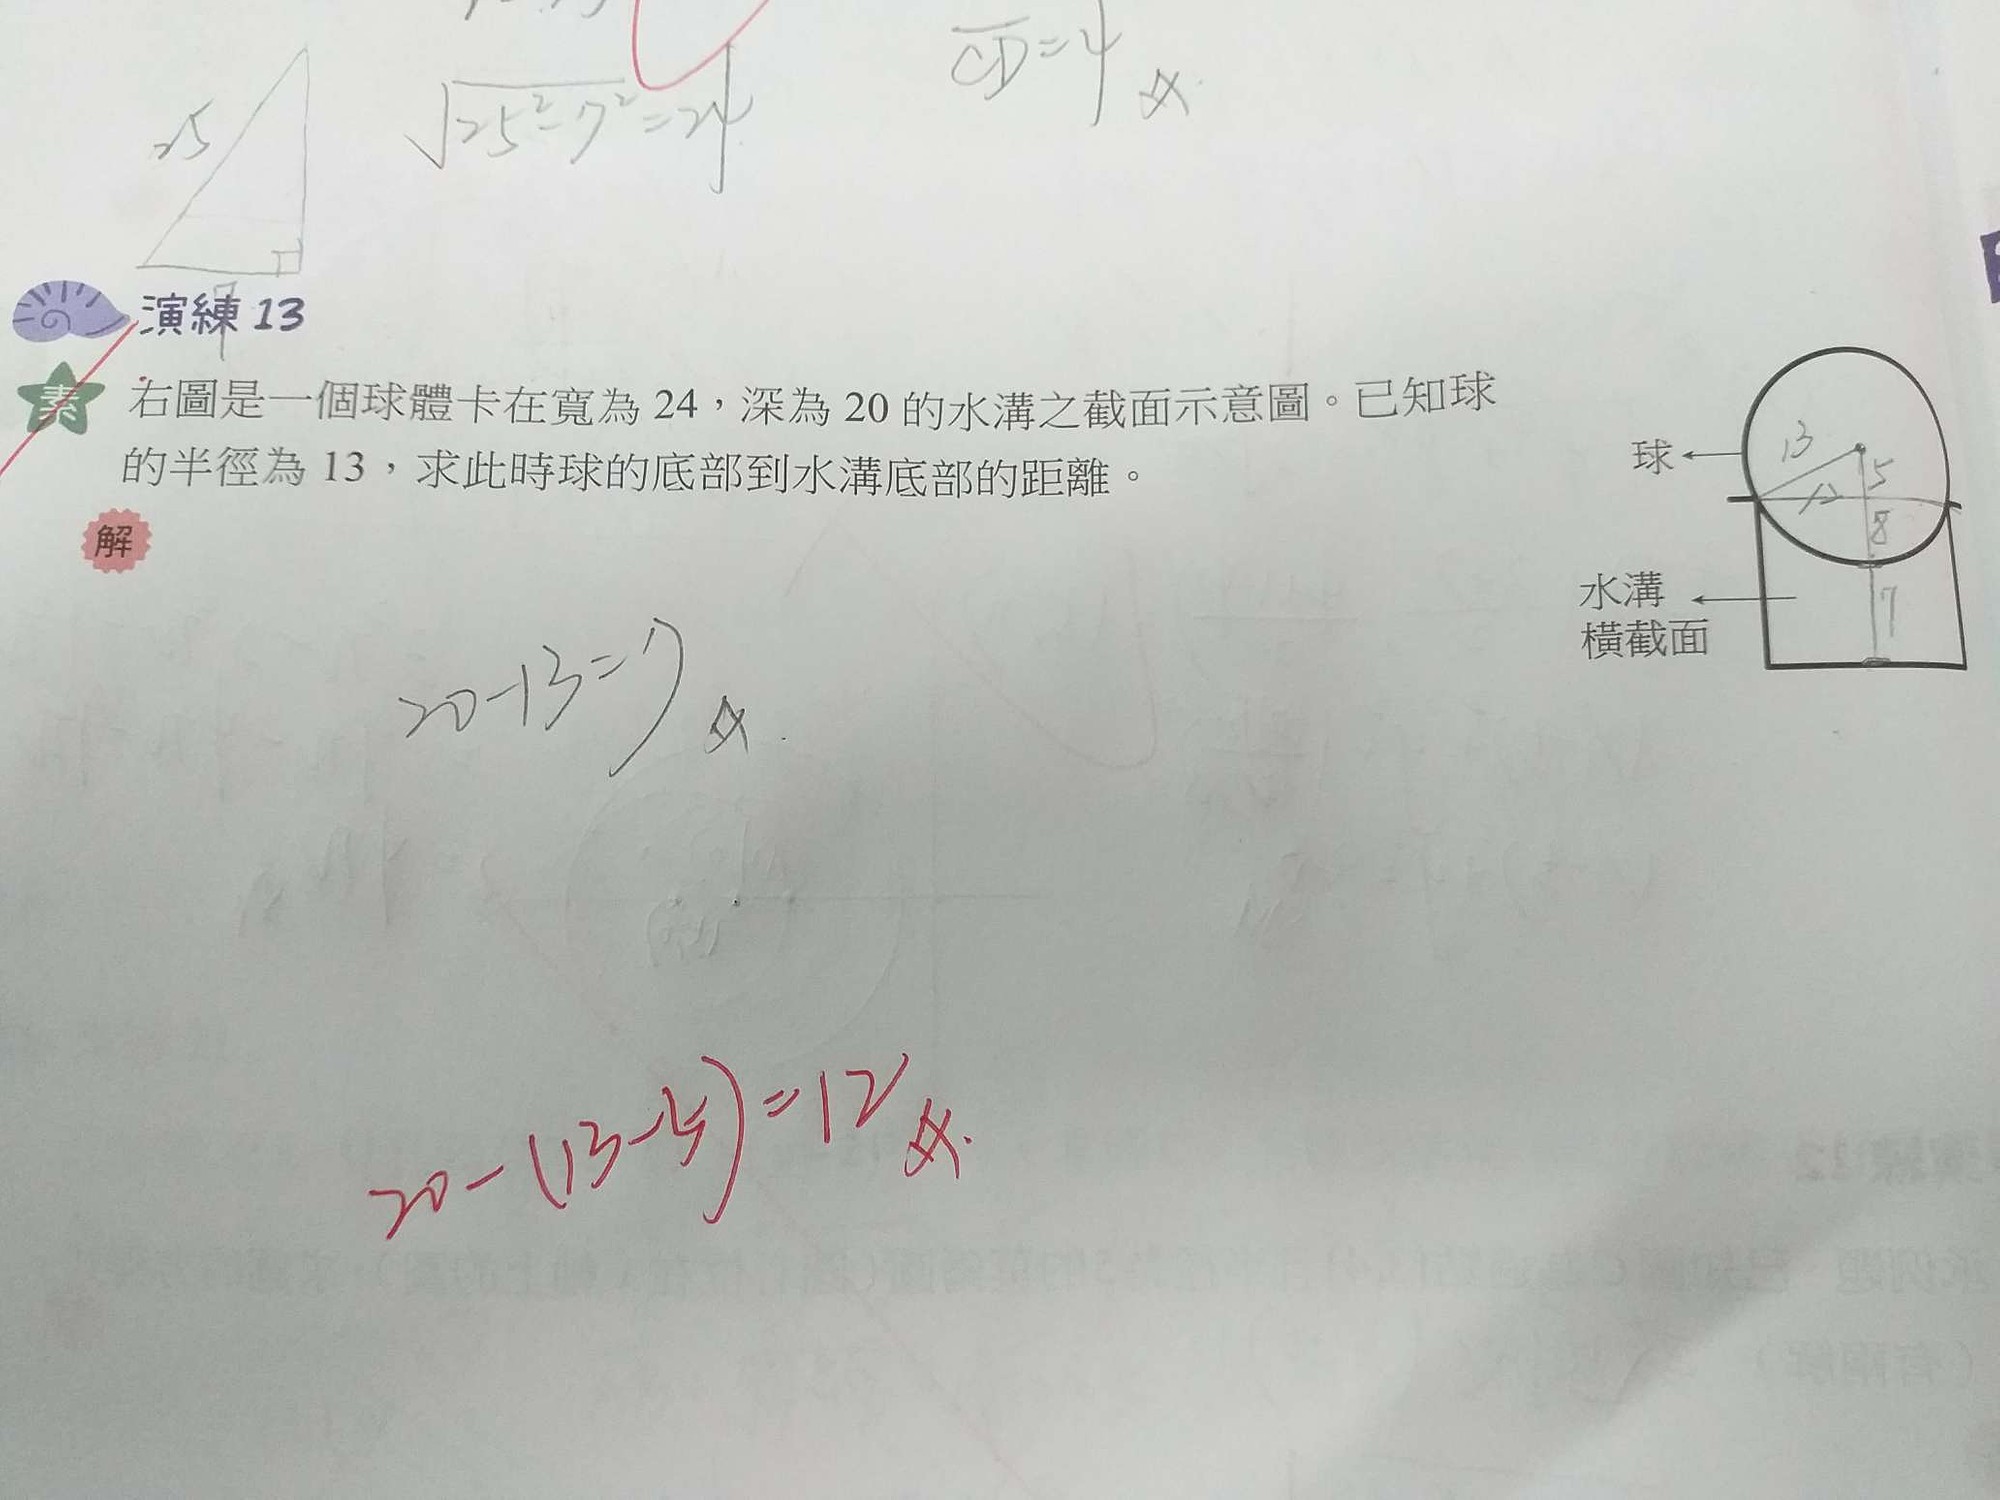 25
√25²-7²=24
CD=4
7
演練 13
素
右圖是一個球體卡在寬為 24,深為 20 的水溝之截面示意圖。已知球
的半徑為 13,求此時球的底部到水溝底部的距離。
解
球
13
5
12
8
水溝
橫截面
7
20-13=7
20-(13-5)=12